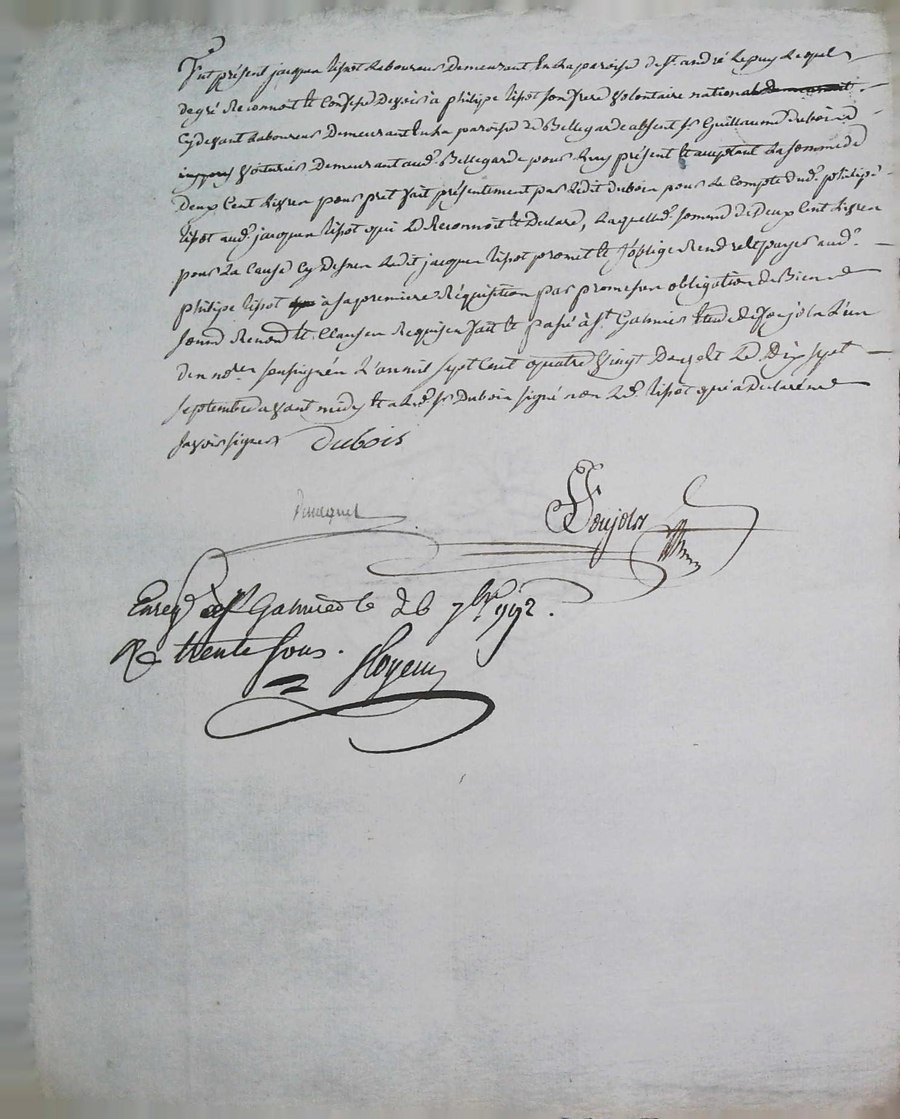 fut présent jacques tissot Laboureur Demeurant En La paroise de st. andré Le puy Lequel
de gré Reconnoit Et Confesse Devoir a philipe tissot son frere volontaire national
Cy devant Laboureur Demeurant En La paroise de Bellegarde absent sr. Guillaume Dubois
voiturier Demeurant aud. Bellegarde pour Luy présent Et acceptant La somme de
Deux Cent Livres pour pret fait présentement par Ledit Dubois pour Le Compte dud. philipe
tissot aud. jacques tissot qui Le Reconnoit Et Declare, Laquelle somme de Deux Cent Livres
pour La Cause Cy Dessus Ledit jacques tissot promet Et s'oblige Rendre Et payer aud.
philipe tissot à sa premiere Réquisition par promesses obligation de Biens
soum. Renon. Et Clauses Requises fait Et passé à st. Galmier Etude de soujols L'un
des nores. soussignés L'an mil sept Cent quatre vingt Douze Et Le Dix sept
septembre avant midy Et a Led. sr Dubois signé non Led. tissot qui a Declaré ne
savoir signer Dubois
Soujols
Enreg. à St. Galmier le 26 7bre 1792.
R. trente sous.